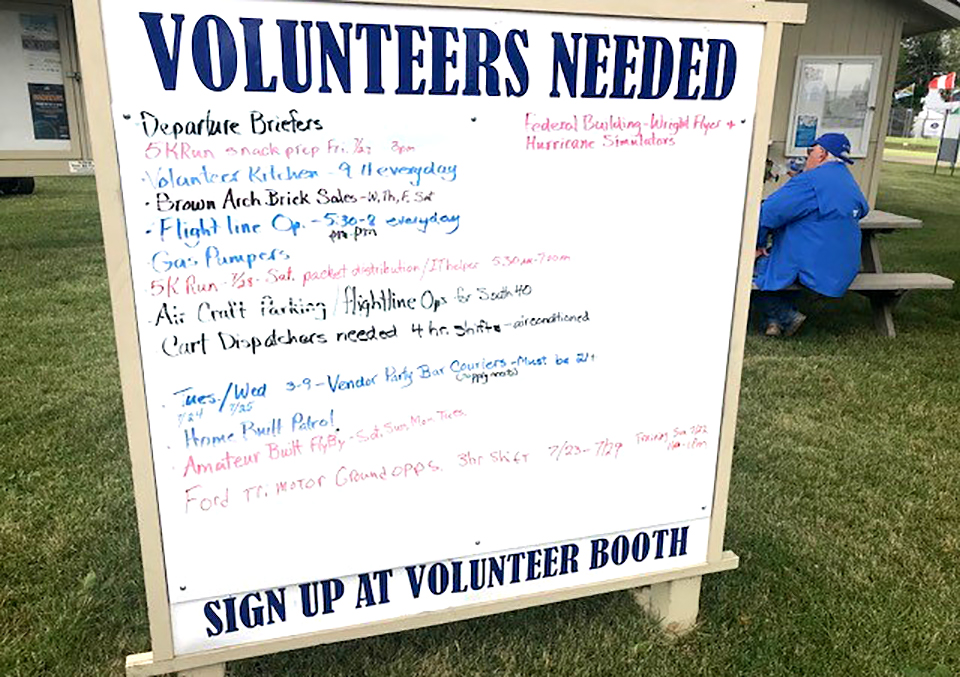 VOLUNTEERS NEEDED
Departure Briefers
5K Run snack prep Fri. 7/27 3pm
Volunteer Kitchen - 9-11 everyday
Brown Arch Brick Sales - W, Th, F, Sat
Flight line Op. - 5:30-8 everyday
pm-pm
Gas Pumpers
5K Run - 7/28 - Sat. packet distribution/IT helper 5:30am-7:00am
Air Craft Parking / flightline Ops for South 40
Cart Dispatchers needed 4 hr. shifts - airconditioned
Tues./Wed 3-9 - Vendor Party Bar Couriers - Must be 21+
7/24 7/25 (supply mats)
Home Built Patrol
Amateur Built FlyBy - Sat, Sun, Mon, Tues.
Ford Tri motor Ground opps. 3hr Shift 7/23 - 7/29 Training Sun 7/22
Federal Building - Wright Flyer +
Hurricane Simulators
SIGN UP AT VOLUNTEER BOOTH